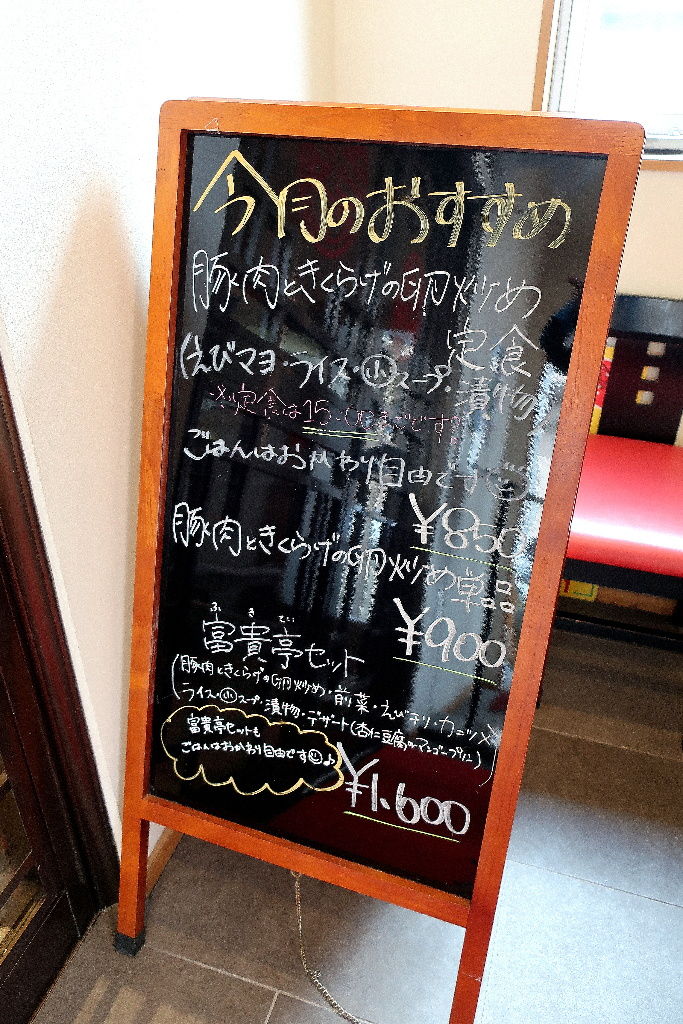 今月のおすすめ
豚肉ときくらげの卵炒め
定食
(えびマヨ・ライス・小スープ・漬物)
※定食は15:00までです。
ごはんはおかわり自由です
¥850
豚肉ときくらげの卵炒め単品
¥900
ふ き てい
富貴亭セット
(豚肉ときくらげの卵炒め・前菜・えびチリ・カニツメ
ライス・小スープ・漬物・デザート(杏仁豆腐orマンゴープリン))
富貴亭セットも
ごはんはおかわり自由です♪
¥1,600